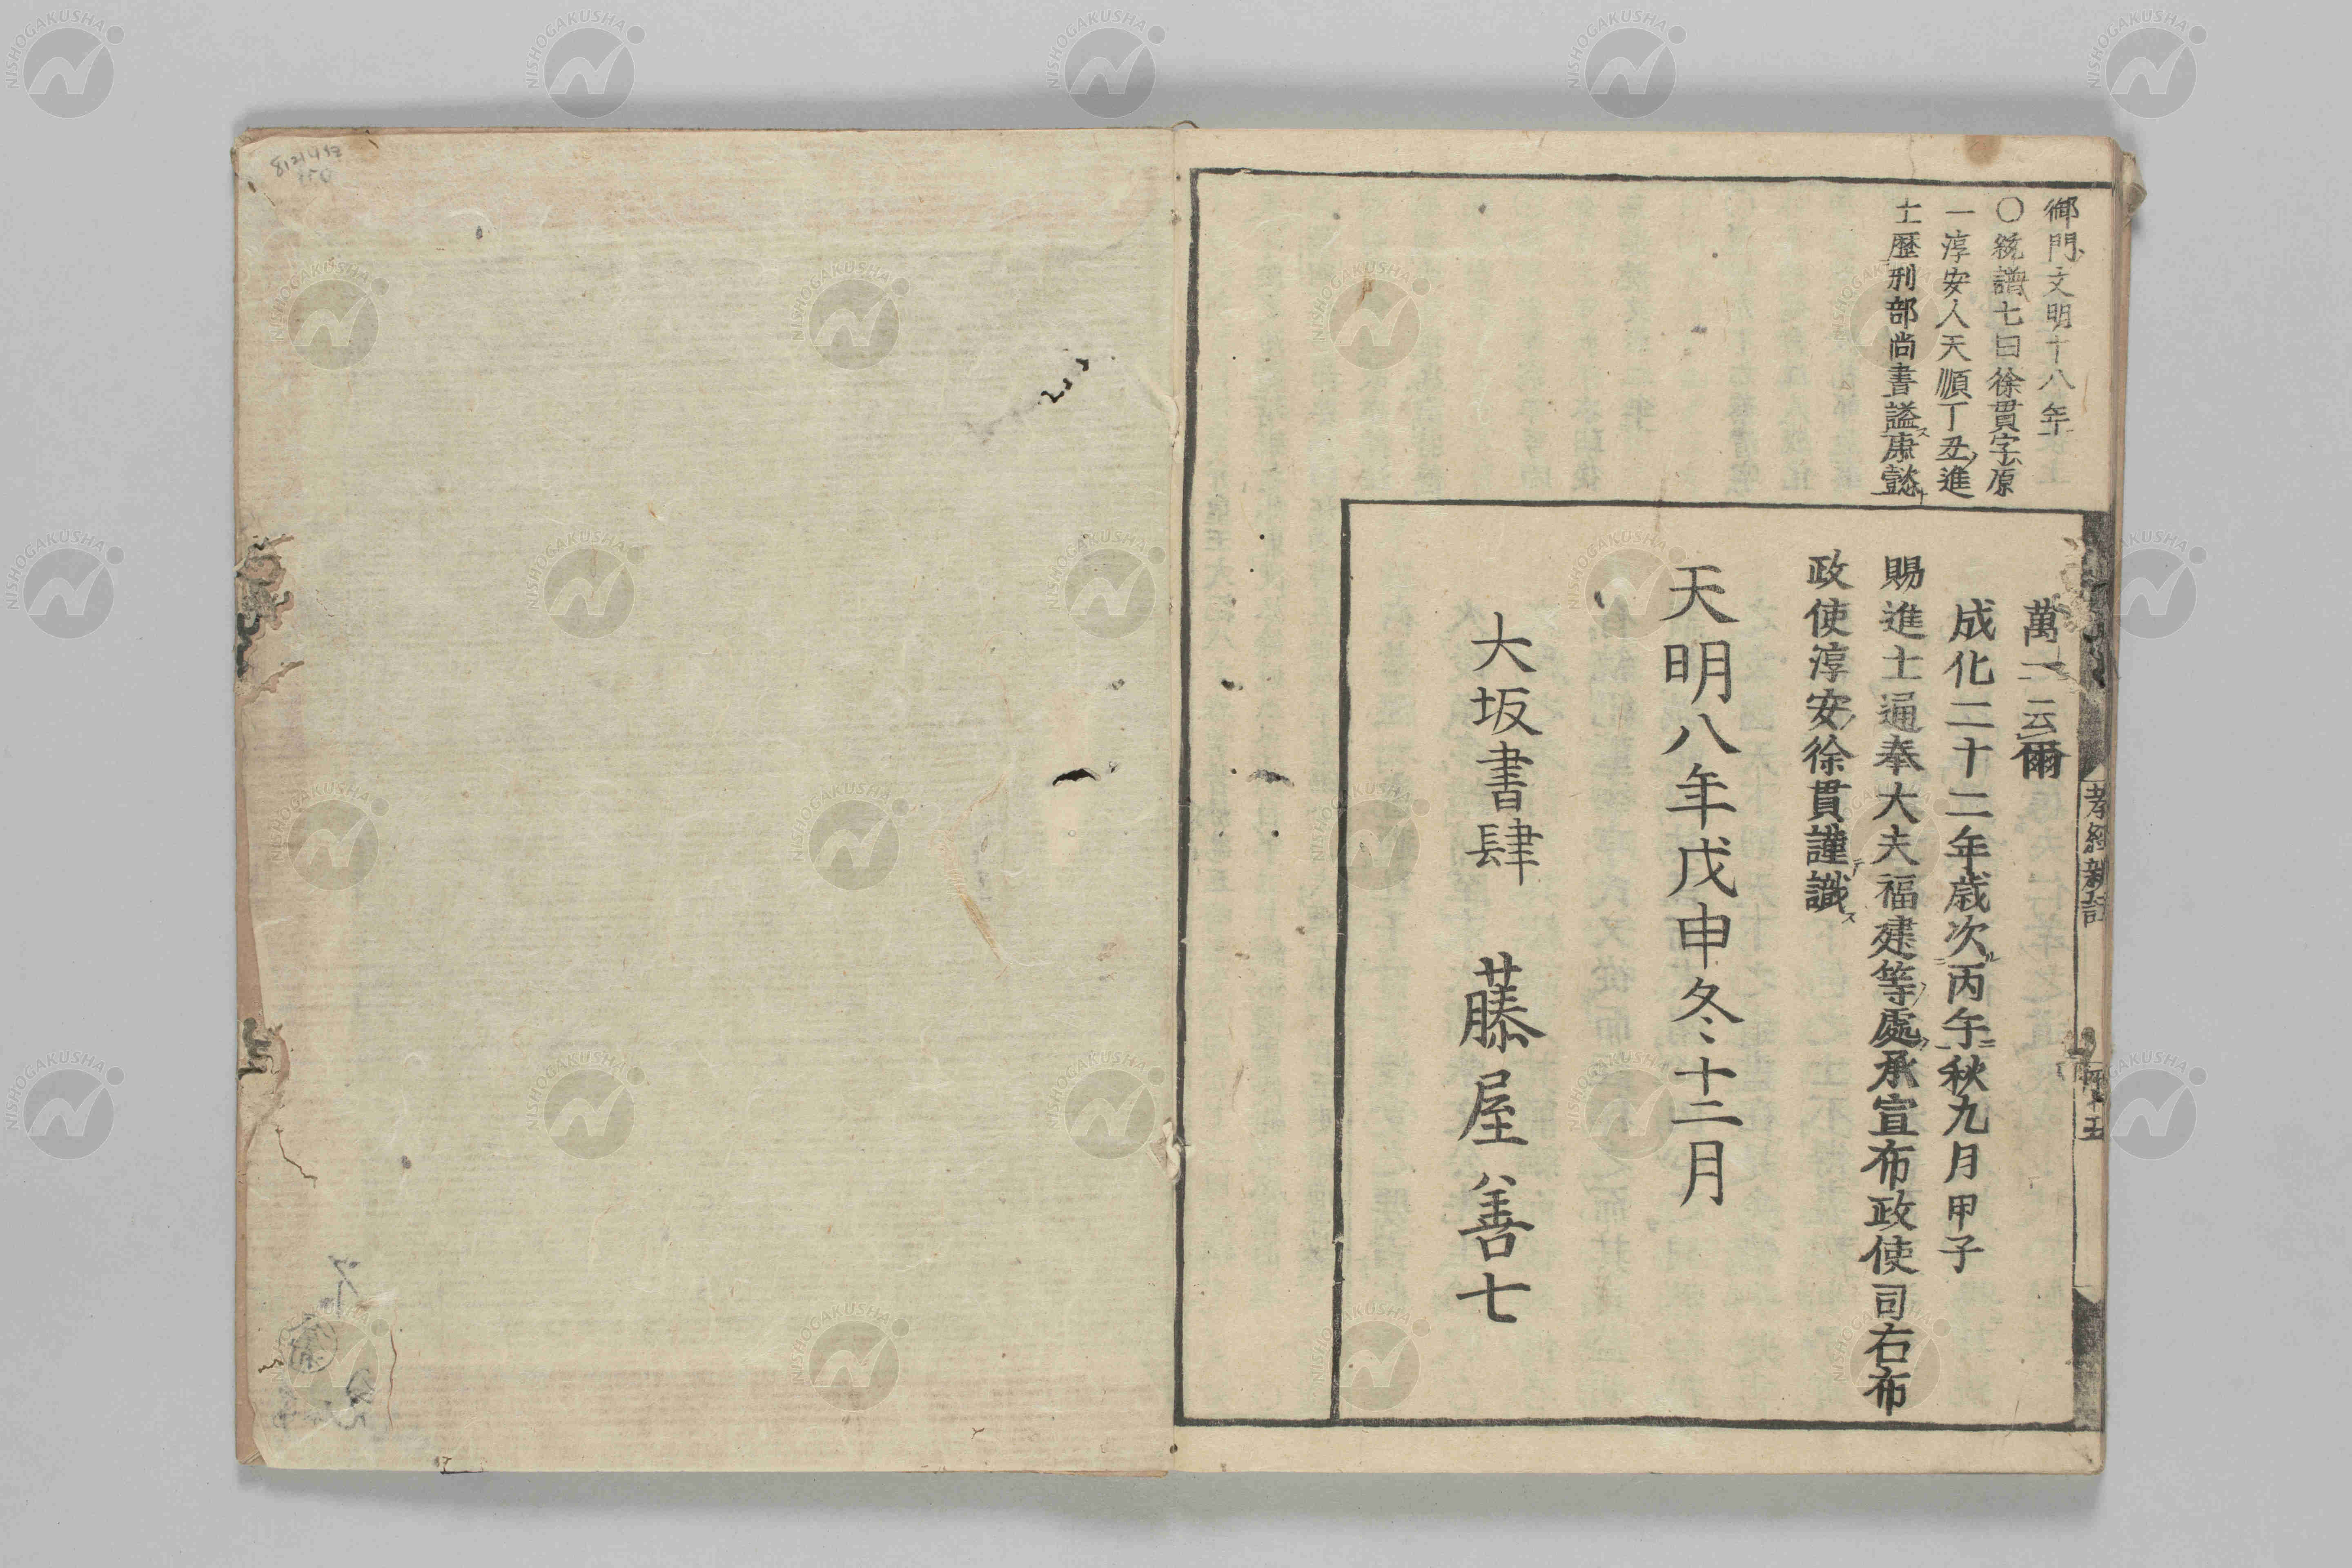 御門文明十八年
〇統譜七曰徐貫字原
一淳安人天順丁丑進
士歷刑部尚書謚康懿
萬一云爾
成化二十二年歳次丙午秋九月甲子
賜進士通奉大夫福建等處承宣布政使司右布
政使淳安徐貫謹識
天明八年戊申冬十二月
大坂書肆 藤屋善七
孝經新註